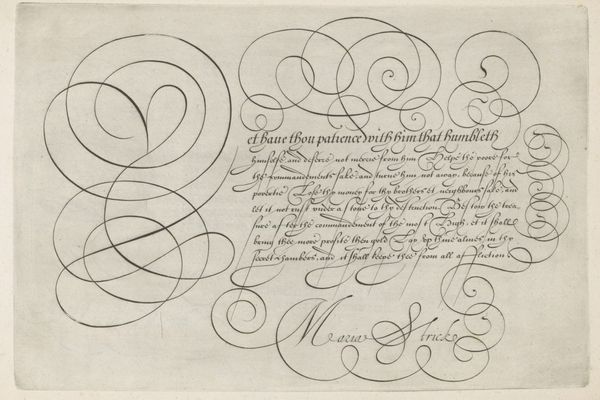 et haue thou patience with him that humbleth
himselfe, and deferre not mercie from him Helpe the poore for
the commandements sake, and turne him not away, because of his
povertie Lose thy money for thy brothers et neighbours sake, and
let it not rust vnder a stone to thy destruction. Bestow thy trea-
sure after the commandement of the most High, et it shall
bring thee more profite then gold Lay vp thine almes in thy
secret chambers, and it shall keepe thee from all affliction.
Maria Strick